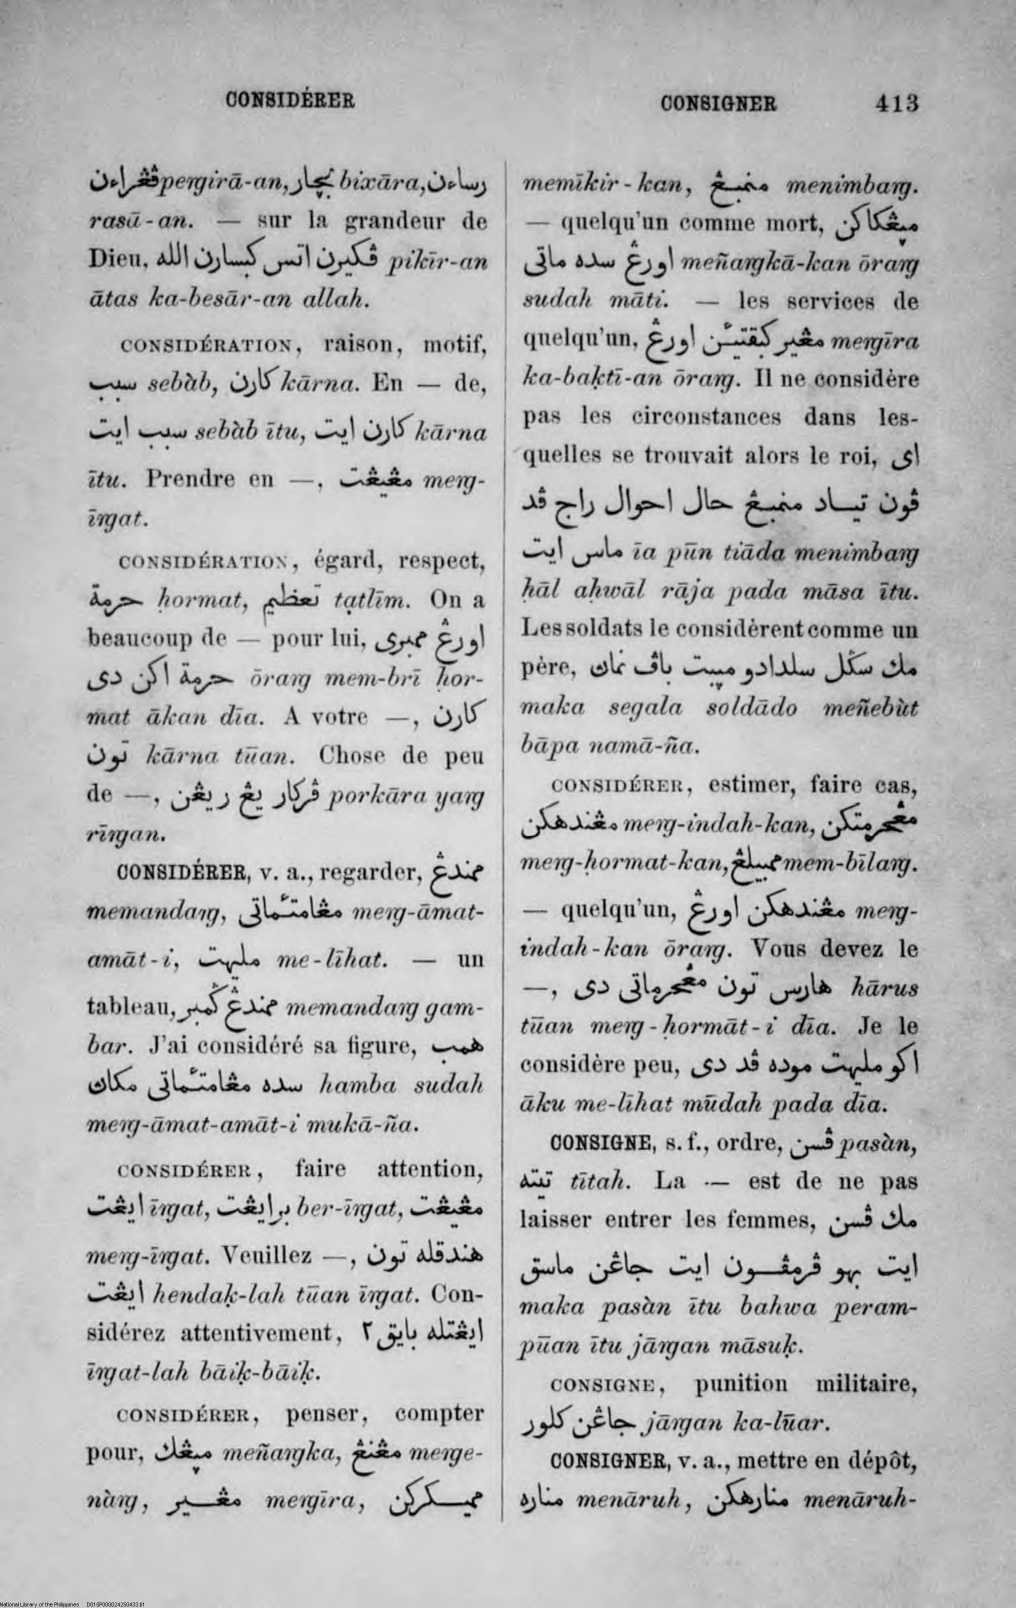 CONSIDÉRER
CONSIGNER 413
ڤڠراءن pergirā-an, بچار bixāra, رساءن
rasā-an. — sur la grandeur de
Dieu, ڤکیرن اتس کبسارن الله pikīr-an
ātas ka-besār-an allah.
CONSIDÉRATION, raison, motif,
سبب sebàb, کارن kārna. En — de,
سبب ایت sebàb ītu, کارن ایت kārna
ītu. Prendre en —, مڠیڠت merg-
īrgat.
CONSIDÉRATION, égard, respect,
حرمة ḥormat, تعظیم taṭlīm. On a
beaucoup de — pour lui, اورڠ ممبری
حرمة اکن دی ōrarg mem-brī ḥor-
mat ākan dīa. A votre —, کارن
تون kārna tūan. Chose de peu
de —, ڤرکار یڠ ریڠن porkāra yarg
rīrgan.
CONSIDÉRER, v. a., regarder, ممندڠ
memandarg, مڠامتئماتی merg-āmat-
amāt-i, ملیهت me-līhat. — un
tableau, ممندڠ گمبر memandarg gam-
bar. J'ai considéré sa figure, همب
سده مڠامتئماتی مکاڽ hamba sudah
merg-āmat-amāt-i mukā-ña.
CONSIDÉRER, faire attention,
ایڠت īrgat, برایڠت ber-īrgat, مڠیڠت
merg-īrgat. Veuillez —, هندقله تون
ایڠت hendaḳ-lah tūan īrgat. Con-
sidérez attentivement, ایڠتله بایق٢
īrgat-lah bāiḳ-bāiḳ.
CONSIDÉRER, penser, compter
pour, مڽڠک meñargka, مڠنڠ merge-
nàrg, مڠیر mergīra, ممیکرکن
memīkir-kan, منمبڠ menimbarg.
— quelqu'un comme mort, مڽڠکاکن
اورڠ سده ماتی meñargkā-kan ōrarg
sudah māti. — les services de
quelqu'un, مڠیر کبقتیئن اورڠ mergīra
ka-baḳtī-an ōrarg. Il ne considère
pas les circonstances dans les-
quelles se trouvait alors le roi, ای
ڤون تیاد منمبڠ حال احوال راج ڤد
ماس ایت īa pūn tiāda menimbarg
ḥāl aḥwāl rāja pada māsa ītu.
Les soldats le considèrent comme un
père, مک سگل سلدادو مڽبت باڤ نماڽ
maka segala soldādo meñebùt
bāpa namā-ña.
CONSIDÉRER, estimer, faire cas,
مڠندهکن merg-indah-kan, مڠحرمتکن
merg-ḥormat-kan, ممبیلڠ mem-bīlarg.
— quelqu'un, مڠندهکن اورڠ merg-
indah-kan ōrarg. Vous devez le
—, هارس تون مڠحرماتی دی hārus
tūan merg-ḥormāt-i dīa. Je le
considère peu, اکو ملیهت موده ڤد دی
āku me-līhat mūdah pada dīa.
CONSIGNE, s. f., ordre, ڤسن pasàn,
تیته tītah. La — est de ne pas
laisser entrer les femmes, مک ڤسن
ایت بهو ڤرمڤون ایت جاڠن ماسق
maka pasàn ītu bahwa peram-
pūan ītu jārgan māsuḳ.
CONSIGNE, punition militaire,
جاڠن کلور jārgan ka-lūar.
CONSIGNER, v. a., mettre en dépôt,
مناره menāruh, منارهکن menāruh-
National Library of the Philippines